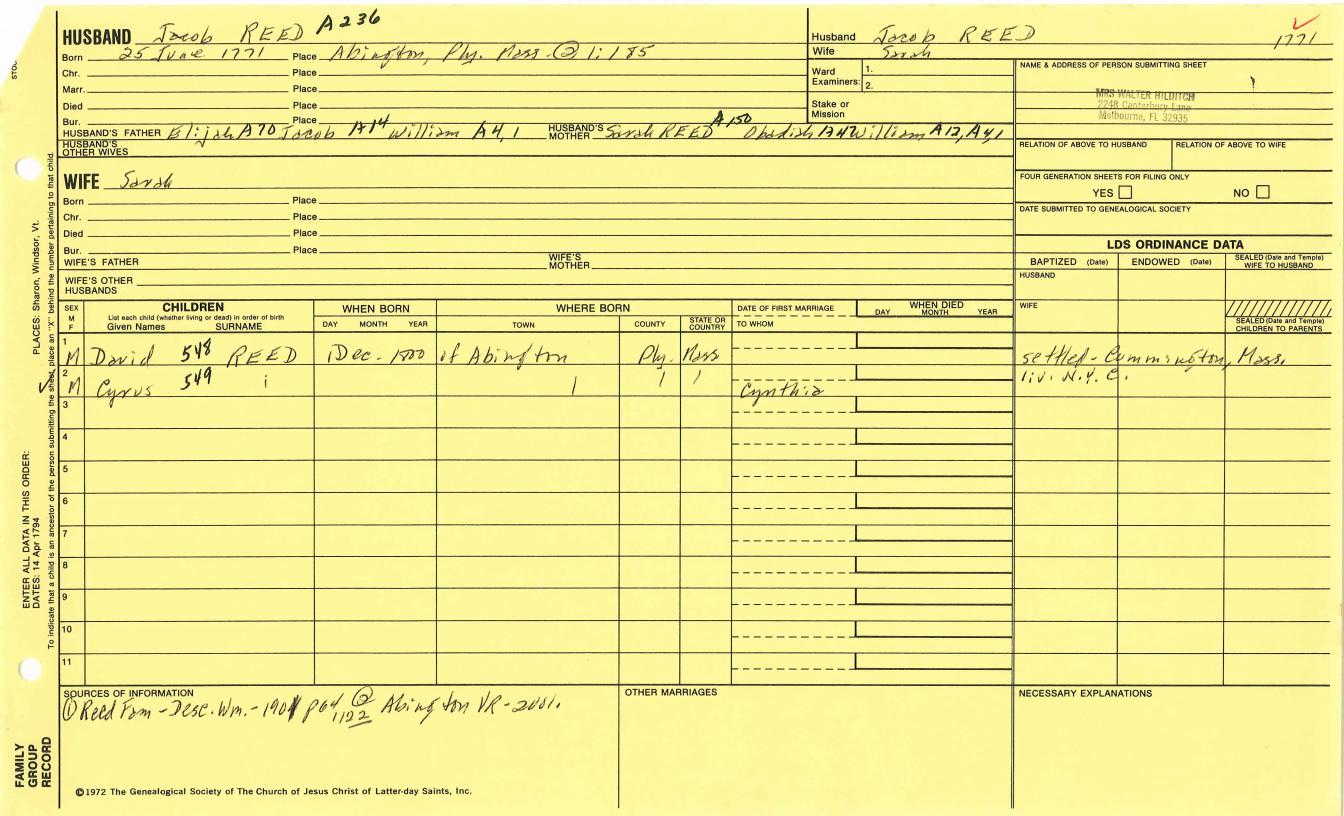 HUSBAND Jacob REED A236
Born 25 June 1771 Place Abington, Ply. Mass. ② 1:185
Chr. Place
Marr. Place
Died Place
Bur. Place
HUSBAND'S FATHER Elijah A70 Jacob A14 William A4, 1 HUSBAND'S MOTHER Sarah REED A150 Obadiah A47 William A12, A4,1
HUSBAND'S OTHER WIVES
Husband Jacob REED 1771
Wife Sarah
Ward Examiners: 1.
2.
Stake or Mission
NAME & ADDRESS OF PERSON SUBMITTING SHEET
MRS WALTER HILDITCH
2248 Canterbury Lane
Melbourne, FL 32935
RELATION OF ABOVE TO HUSBAND RELATION OF ABOVE TO WIFE
FOUR GENERATION SHEETS FOR FILING ONLY
YES NO
DATE SUBMITTED TO GENEALOGICAL SOCIETY
WIFE Sarah
Born Place
Chr. Place
Died Place
Bur. Place
WIFE'S FATHER WIFE'S MOTHER
WIFE'S OTHER HUSBANDS
LDS ORDINANCE DATA
BAPTIZED (Date) ENDOWED (Date) SEALED (Date and Temple) WIFE TO HUSBAND
HUSBAND
WIFE
SEALED (Date and Temple) CHILDREN TO PARENTS
SEX M F CHILDREN WHEN BORN WHERE BORN DATE OF FIRST MARRIAGE WHEN DIED
List each child (whether living or dead) in order of birth
Given Names SURNAME DAY MONTH YEAR TOWN COUNTY STATE OR COUNTRY TO WHOM DAY MONTH YEAR
1 M David 548 REED 1 Dec. 1800 of Abington Ply. Mass settled - Cummington, Mass.
2 M Cyrus 549 Cynthia liv. N.Y.C.
3
4
5
6
7
8
9
10
11
SOURCES OF INFORMATION
① Reed Fam - Desc. Wm. - 1901 p64 ② Abington VR - 2vol.
1192
OTHER MARRIAGES
NECESSARY EXPLANATIONS
©1972 The Genealogical Society of The Church of Jesus Christ of Latter-day Saints, Inc.
FAMILY GROUP RECORD
ENTER ALL DATA IN THIS ORDER:
DATES: 14 Apr 1794 PLACES: Sharon, Windsor, Vt.
To indicate that a child is an ancestor of the person submitting the sheet, place an "X" behind the number pertaining to that child.